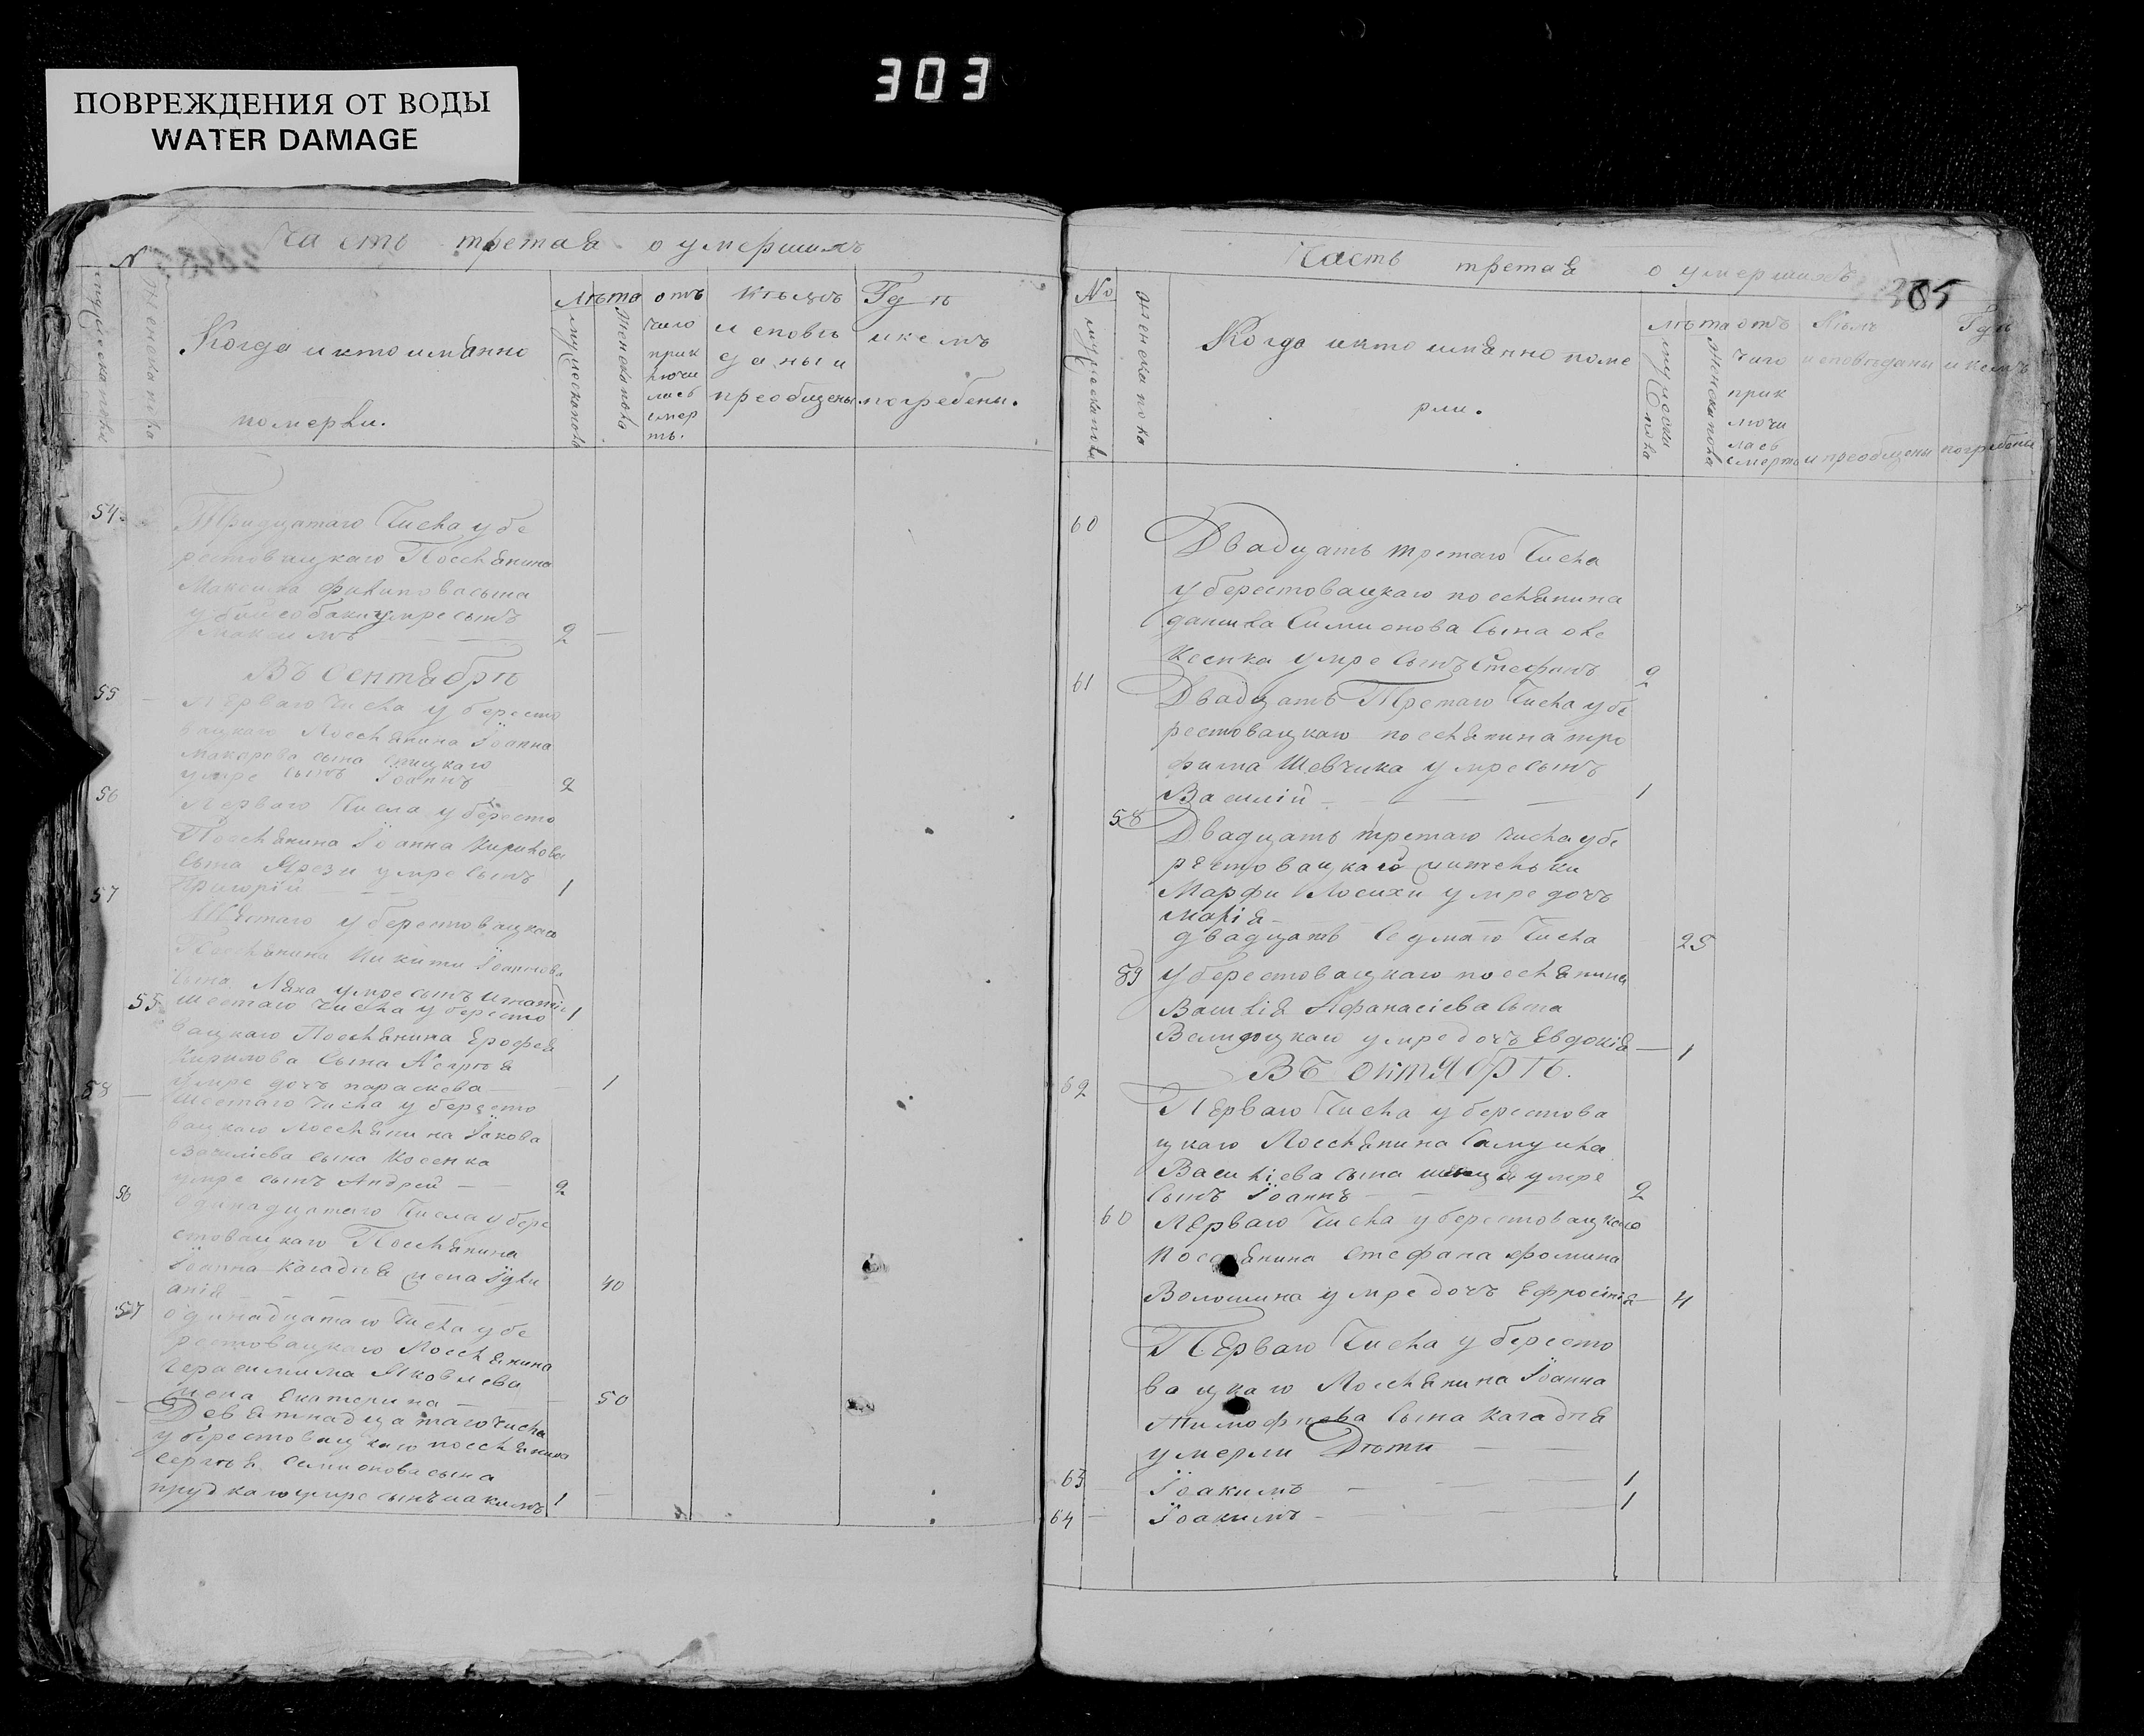 303
ПОВРЕЖДЕНИЯ ОТ ВОДЫ
WATER DAMAGE
Часть третая о умершихъ
№
мужеска пола
женска пола
Когда и кто имянно
померли.
Лѣта
мужеска пола
женска пола
отъ
чего
прик
лючи
лась
смер
ть.
Кѣмъ
исповѣ
даны и
преобщены
Гдѣ
и кемъ
погребены.
54
Тридцатаго Числа у бе
рестовацкаго Посєлянина
Максима филипова сына
умре сынъ
Максимъ 2
Въ сентябрѣ
55
Перваго Числа у бересто
вацкаго Поселянина Іоанна
макарова сына
умре сынъ Іоаннъ 2
56
Перваго Числа у бересто
Поселянина Іоанна Кирилова
сына умре сынъ
Григорій 1
57
Шестаго у берестовацкаго
Поселянина Никити Іоаннова
сына Ляха умре сынъ 1
55
шестаго числа у бересто
вацкаго Поселянина Ерофея
Кирилова Сына
умре дочъ параскева 1
58
шестаго числа у бересто
вацкаго Поселянина Іакова
Василіева сына Косенка
умре сынъ Андрей 2
56
одинадцатаго Числа у бере
стовацкаго Поселянина
Іоанна Кагадня жена Іули
анія 40
57
одинадцатаго Числа у бе
рестовацкаго Поселянина
герасимима Яковлева
жена Екатерина 50
Девятнадцатаго числа
у берестовацкаго поселянина
сергѣя Симионова сына
прудкаго умре сынъ иакимъ 1
Часть третая о умершихъ
385
№
мужеска пола
женска пола
Когда и кто имянно поме
рли.
лѣта
мужеска пола
женска пола
отъ
чего
прик
лючи
лась
смерть
Кѣмъ
исповѣданы
и преобщены
Гдѣ
и кемъ
погребены
60
Двадцать третаго Числа
у берестовацкаго поселянина
данила Симионова Сына оле
ксенка умре Сынъ Стефанъ 2
61
Двадцать Третаго Числа у бе
рестовацкаго поселянина тро
фима Шевчика умре сынъ
Василій 1
58
Двадцать третаго числа у бе
рестовацкаго жительки
Марфи Лосихи умре дочъ
марія
двадцать Седмаго Числа 25
59
у берестовацкаго поселянина
Василія Афанасіева Сына
Велицкаго умре дочъ Евдокія 1
Въ октябрѣ.
62
Перваго Числа у берестова
цкаго Поселянина Самуила
Василіева сына умре
Сынъ Іоаннъ 2
60
Перваго Числа у берестовацкаго
Поселянина Стефана фомина
Волошина умре дочъ Ефросінія 4
Перваго Числа у бересто
вацкаго Поселянина Іоанна
Тимофиева Сына Кагадня
умерли Дѣти
63 Іоакимъ 1
64 Іоакимъ 1